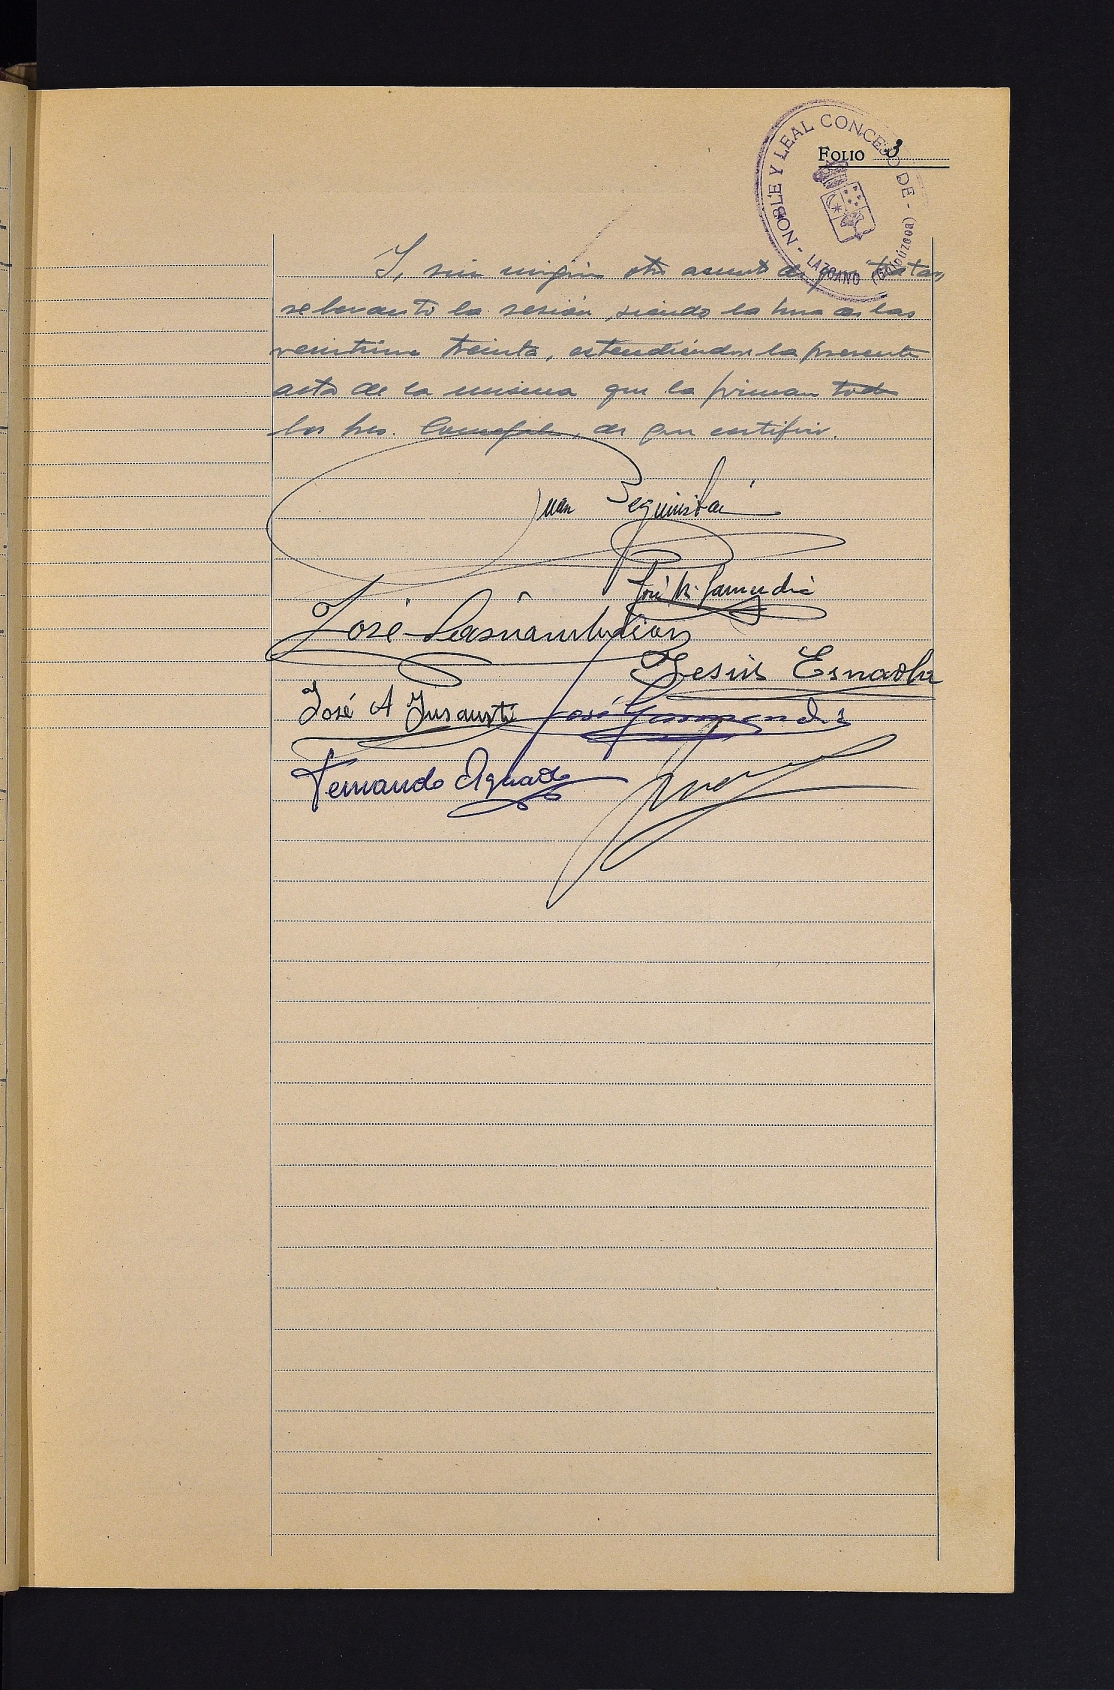 FOLIO 3
- NOBLE Y LEAL CONCEJO DE - LAZCANO (Guipúzcoa)
Y, sin ningún otro asunto de que tratar,
se levantó la sesión, siendo la hora de las
veintiuna treinta, extendiéndose la presente
acta de la misma que la firman todos
los Sres. Concejales, de que certifico.
Juan Beguiristáin
José M. Garmendia
José
Jesús Esnaola
José A Insausti José Garmendia
Fernando Aguado